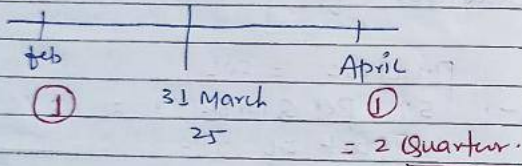 feb April
① 31 March ①
25 = 2 Quarter.